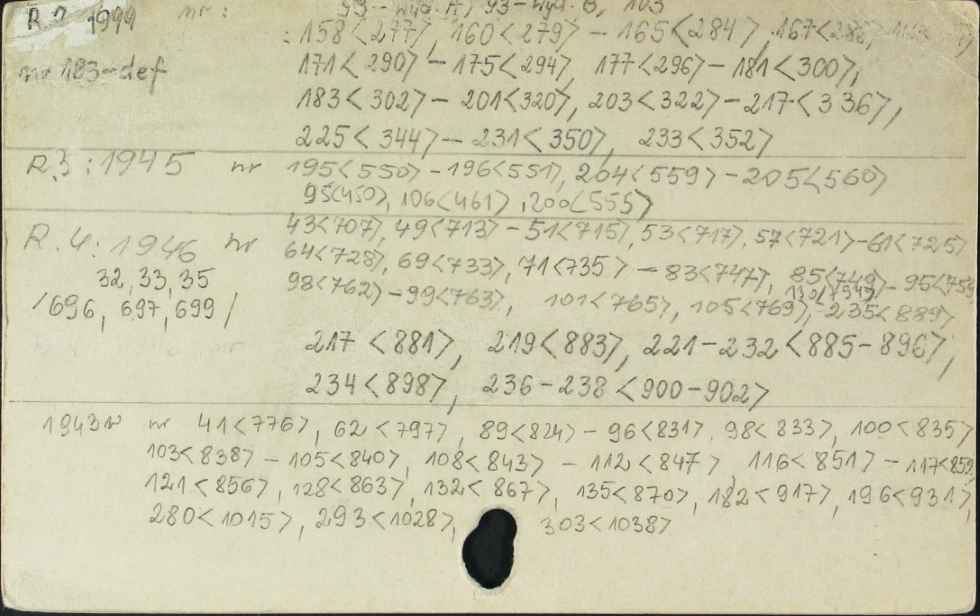 nr: 93-wyd. A, 93-wyd. B, 103
: 158<277>, 160<279> - 165<284>, 167<286>
nr 183-def 171<290> - 175<294>, 177<296> - 181<300>,
183<302> - 201<320>, 203<322> - 217<336>,
225<344> - 231<350>, 233<352>
R.3: 1945 nr 195<550> - 196<551>, 204<559> - 205<560>
95<450>, 106<461>, 200<555>
R.4: 1946 nr 43<707>, 49<713> - 51<715>, 53<717>, 57<721> - 61<725>
64<728>, 69<733>, 71<735> - 83<747>, 85<749> - 95<759
32, 33, 35
/696, 697, 699/
98<762> - 99<763>, 101<765>, 105<769>, 235<889>
217<881>, 219<883>, 221-232<885-896>,
234<898>, 236-238<900-902>
nr 41<776>, 62<797>, 89<824> - 96<831>, 98<833>, 100<835>
103<838> - 105<840>, 108<843> - 112<847> 116<851> - 117<852
121<856>, 128<863>, 132<867>, 135<870>, 182<917>, 196<931>,
280<1015>, 293<1028>, 303<1038>